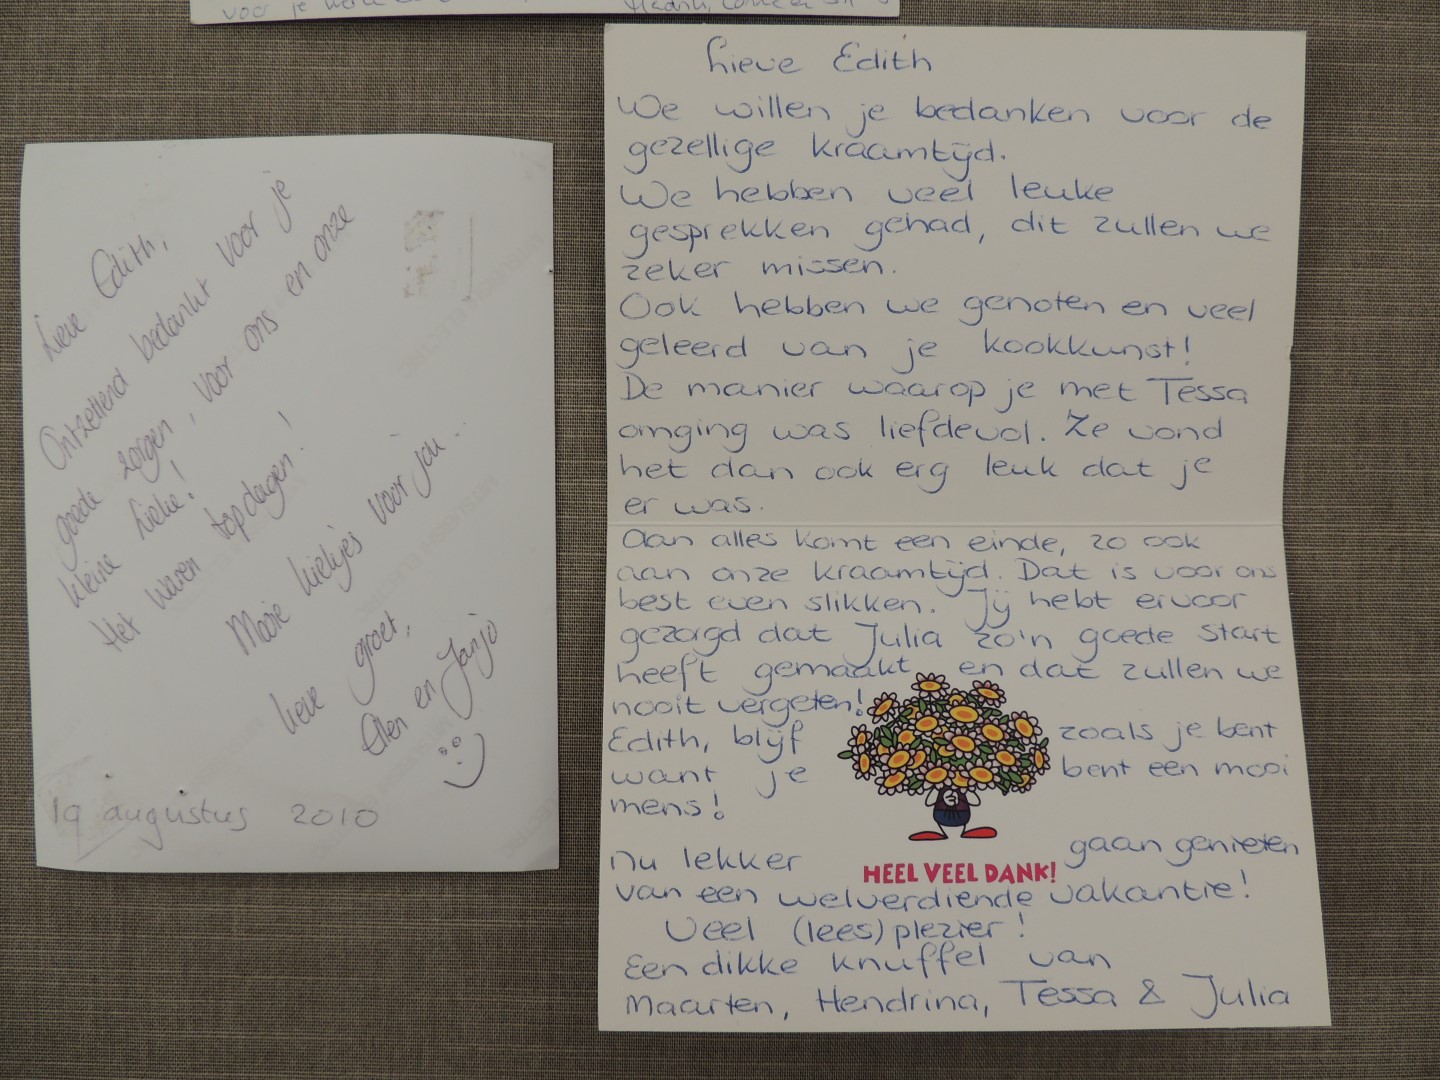 voor je
Lieve Edith,
Ontzettend bedankt voor je
goede zorgen, voor ons en onze
kleine Lieke!
Het waren topdagen!
Mooie kiekjes voor jou...
Lieve groet,
Ellen en Janjo
19 augustus 2010
Lieve Edith
We willen je bedanken voor de
gezellige kraamtijd.
We hebben veel leuke
gesprekken gehad, dit zullen we
zeker missen.
Ook hebben we genoten en veel
geleerd van je kookkunst!
De manier waarop je met Tessa
omging was liefdevol. Ze vond
het dan ook erg leuk dat je
er was.
Aan alles komt een einde, zo ook
aan onze kraamtijd. Dat is voor ons
best even slikken. Jij hebt ervoor
gezorgd dat Julia zo'n goede start
heeft gemaakt en dat zullen we
nooit vergeten!
Edith, blijf zoals je bent
want je bent een mooi
mens!
nu lekker gaan genieten
HEEL VEEL DANK!
van een welverdiende vakantie!
Veel (lees) plezier!
Een dikke knuffel van
Maarten, Hendrina, Tessa & Julia